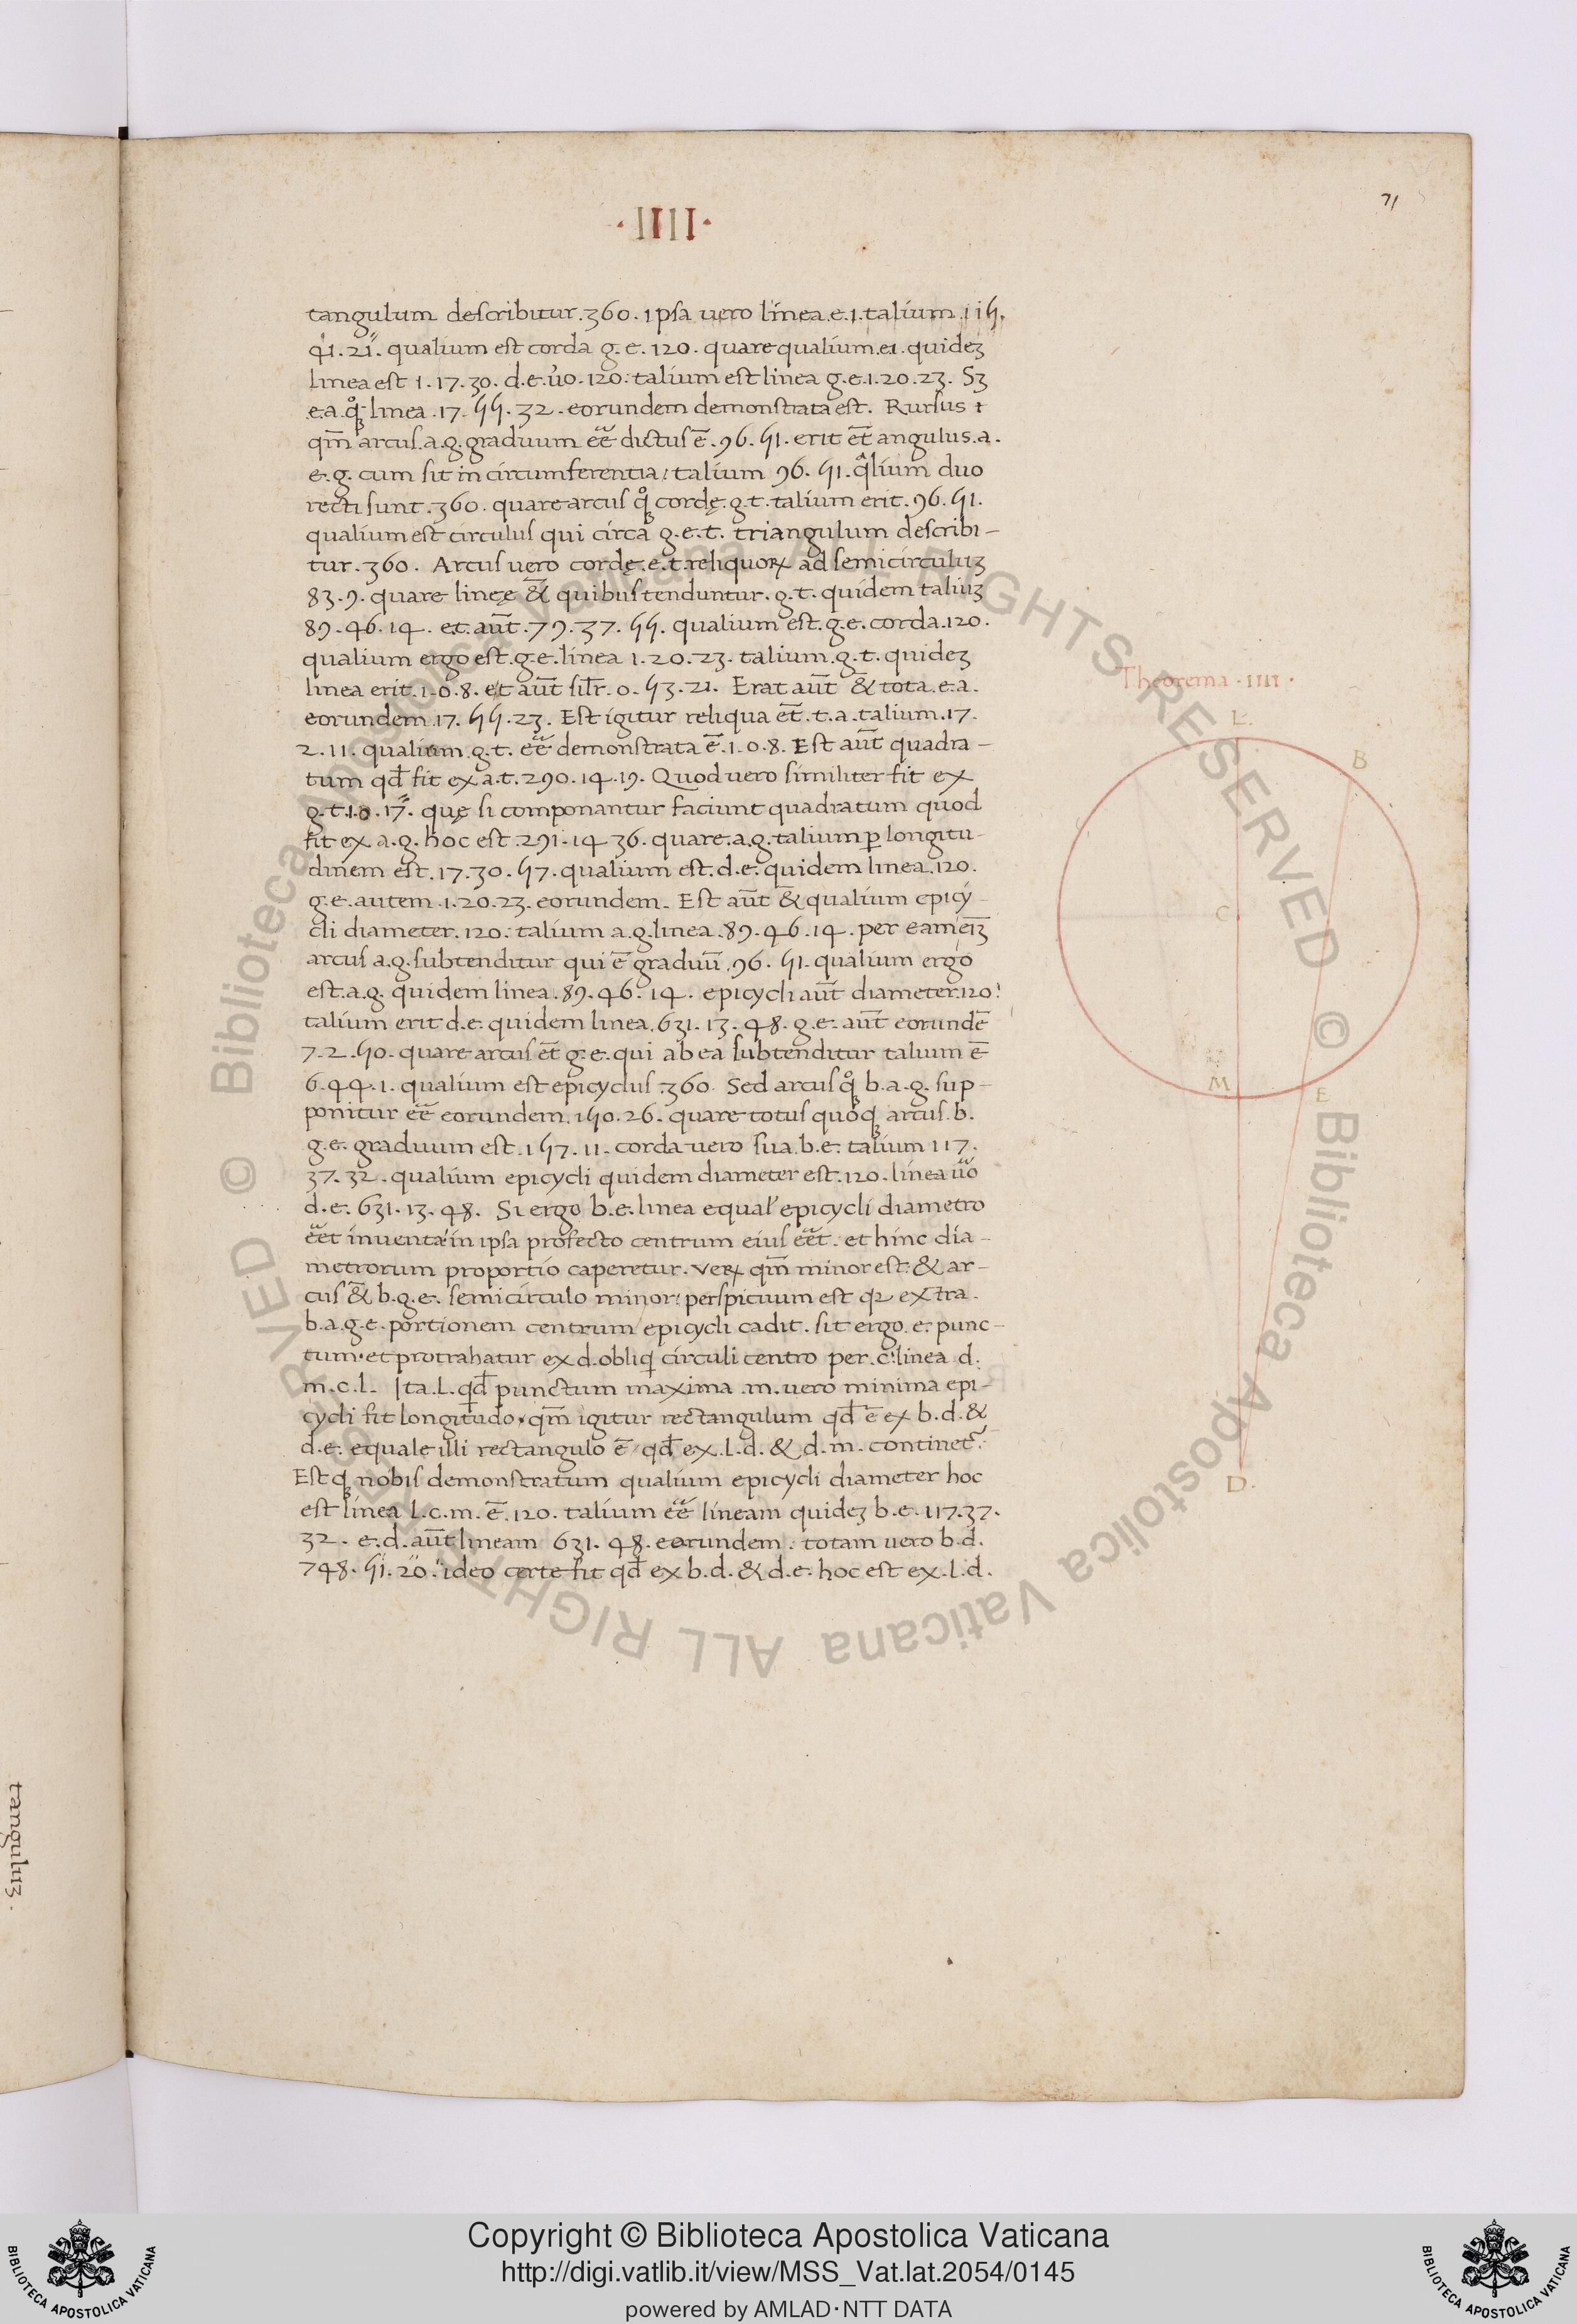 71
·IIII·
tangulum describitur.360. ipsa uero linea.e.i.talium.115.
41.21. qualium est corda g.e.120. quare qualium.ei.quideʒ
linea est 1.17.30. d.e.ůo.120: talium est linea g.e.1.20.23. Sʒ
e.a.qͦꝫ linea.17.55.32. eorundem demonstrata est. Rursus
qm̄ arcus.a.g.graduum eē dictus ē.96.51. erit et̄ angulus.a.
e.g. cum sit in circumferentia: talium 96.51.qalium duo
recti sunt.360. quare arcus qͦꝫ cordę.g.t.talium erit.96.51.
qualium est circulus qui circa g.e.t. triangulum describi-
tur.360. Arcus vero cordę.e.t.reliquoꝝ ad semicirculuʒ
83.9. quare lineę &̄ quibus tenduntur.g.t. quidem taliuʒ
89.46.14. e.t. aut̄.79.37.55. qualium est.g.e.corda.120.
qualium ergo est.g.e.linea 1.20.23. talium.g.t. quideʒ
linea erit.1.0.8. et aut̄ silr̄.0.53.21. Erat aut̄ &̄ tota.e.a.
eorundem.17.55.23. Est igitur reliqua et̄.t.a.talium.17.
2.11. qualium.g.t. eē demonstrata ē.1.0.8. Est aut̄ quadra-
tum qd̄ fit ex a.t.290.14.19. Quod vero similiter fit ex
g.t.1.0.17. quę si componantur faciunt quadratum quod
fit ex a.g. hoc est.291.14 36. quare.a.g.talium ꝑ longitu-
dinem est.17.30.57. qualium est.d.e.quidem linea.120.
g.e.autem.1.20.23. eorundem. Est aut̄ &̄ qualium epicy-
cli diameter.120: talium a.g.linea.89.46.14. per eam eīʒ
arcus a.g.subtenditur qui ē graduū.96.51. qualium ergo
est.a.g. quidem linea.89.46.14. epicycli aut̄ diameter.120:
talium erit d.e. quidem linea.631.13.48. g.e. aut̄ eorundē
7.2.50. quare arcus et̄ g.e. qui ab ea subtenditur talium ē
6.44.1. qualium est epicyclus.360. Sed arcus qͦꝫ b.a.g. sup-
ponitur eē eorundem.150.26. quare totus quoqꝫ arcus.b.
g.e. graduum est.157.11. corda uero sua.b.e. talium 117.
37.32. qualium epicycli quidem diameter est.120. linea ůo
d.e. 631.13.48. Si ergo b.e.linea equal' epicycli diametro
eēt inuenta: in ipsa profecto centrum eius eēt. et hinc dia-
metrorum proportio caperetur. veꝝ qm̄ minor est: & ar-
cus &̄ b.g.e. semicirculo minor: perspicuum est qꝫ extra
b.a.g.e. portionem centrum epicycli cadit. sit ergo.e. punc-
tum. et protrahatur ex d.obliqi circuli centro per.c.linea d.
m.c.l. Ita.l.qd̄ punctum maxima .m.uero minima epi-
cycli fit longitudo. qm̄ igitur rectangulum qd̄ ē ex b.d. &
d.e. equale illi rectangulo ē qd̄ ex.l.d. & d.m. continet̄.
Est qꝫ nobis demonstratum qualium epicycli diameter hoc
est linea l.c.m. ē.120. talium eē lineam quideʒ b.e. 117.37.
32. e.d. aut̄ lineam 631.48. eorundem: totam uero b.d.
748.51.20. ideo certe fit qd̄ ex b.d. & d.e. hoc est ex.l.d.
Theorema ·IIII·
L.
B
C
M
E
D.
tanguluʒ.
© Biblioteca Apostolica Vaticana ALL RIGHTS RESERVED © Biblioteca Apostolica Vaticana ALL RIGHTS RESERVED
Copyright © Biblioteca Apostolica Vaticana
http://digi.vatlib.it/view/MSS_Vat.lat.2054/0145
powered by AMLAD·NTT DATA
BIBLIOTECA APOSTOLICA VATICANA
BIBLIOTECA APOSTOLICA VATICANA